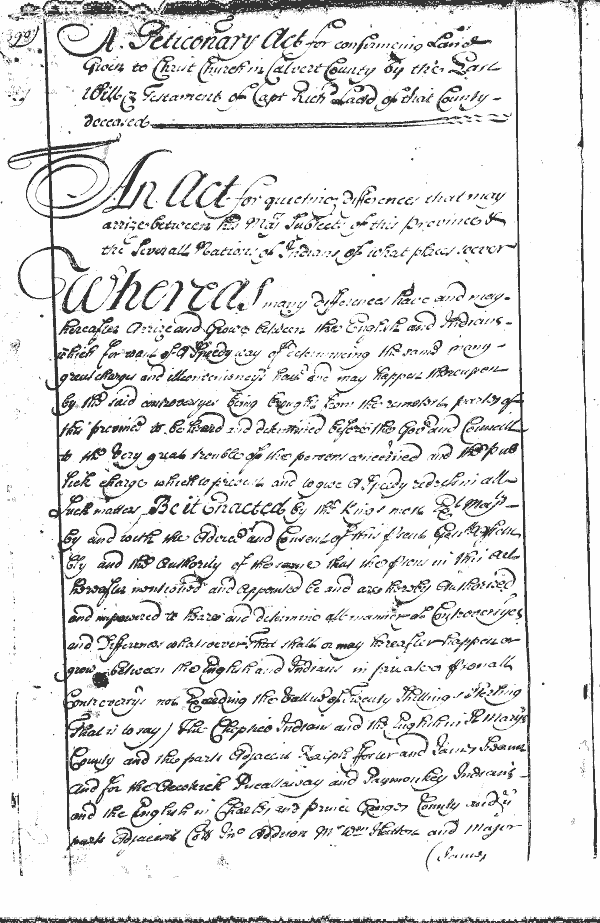 A Peticonary Act for confirmeing Land
Given to Christ Church in Calvert County by the Last
Will & Testament of Capt Rich Ladd of that County
deceased
An Act for quieting differences that may
arrize between his Maj Subjects of this Province &
the Severall Nations of Indians of what place soever
Whereas many differences have and may
hereafter Arrize and Grow between the English and Indians
which for want of a Speedy way of determineing the same many
great charges and inconveniencys have and may happen thereupon
by the said controversyes being brought from the remotest parts of
this province to be heard and determined before the Govr and Councill
to the very great trouble of the persons concerned and the Pub
lick charge which to prevent and to give a Speedy redress in all
such matters Be it Enacted by the Kings most Ext Majty
by and with the Advice and Consent of this prsent Genll Assem
bly and the Authority of the same that the prsons in this Act
hereafter mentioned and appointed be and are hereby Authorised
and impowered to heare and determine all manner of Controversyes
and Differences whatsoever that shall or may hereafter happen or
grow between the English and Indians in private
Controversys not Exceeding the Vallue of Twenty Shillings Sterling
That is to say) The Choptico Indians and the English in St Marys
County and the parts Adjacent Ralph Forler and James
and for the Accokick Piscattaway and Paymonkey Indians
and the English in Charles and Prince Georges County and ye
parts Adjacent Coll Jno Addison Mr Wm Hutton and Major
(James